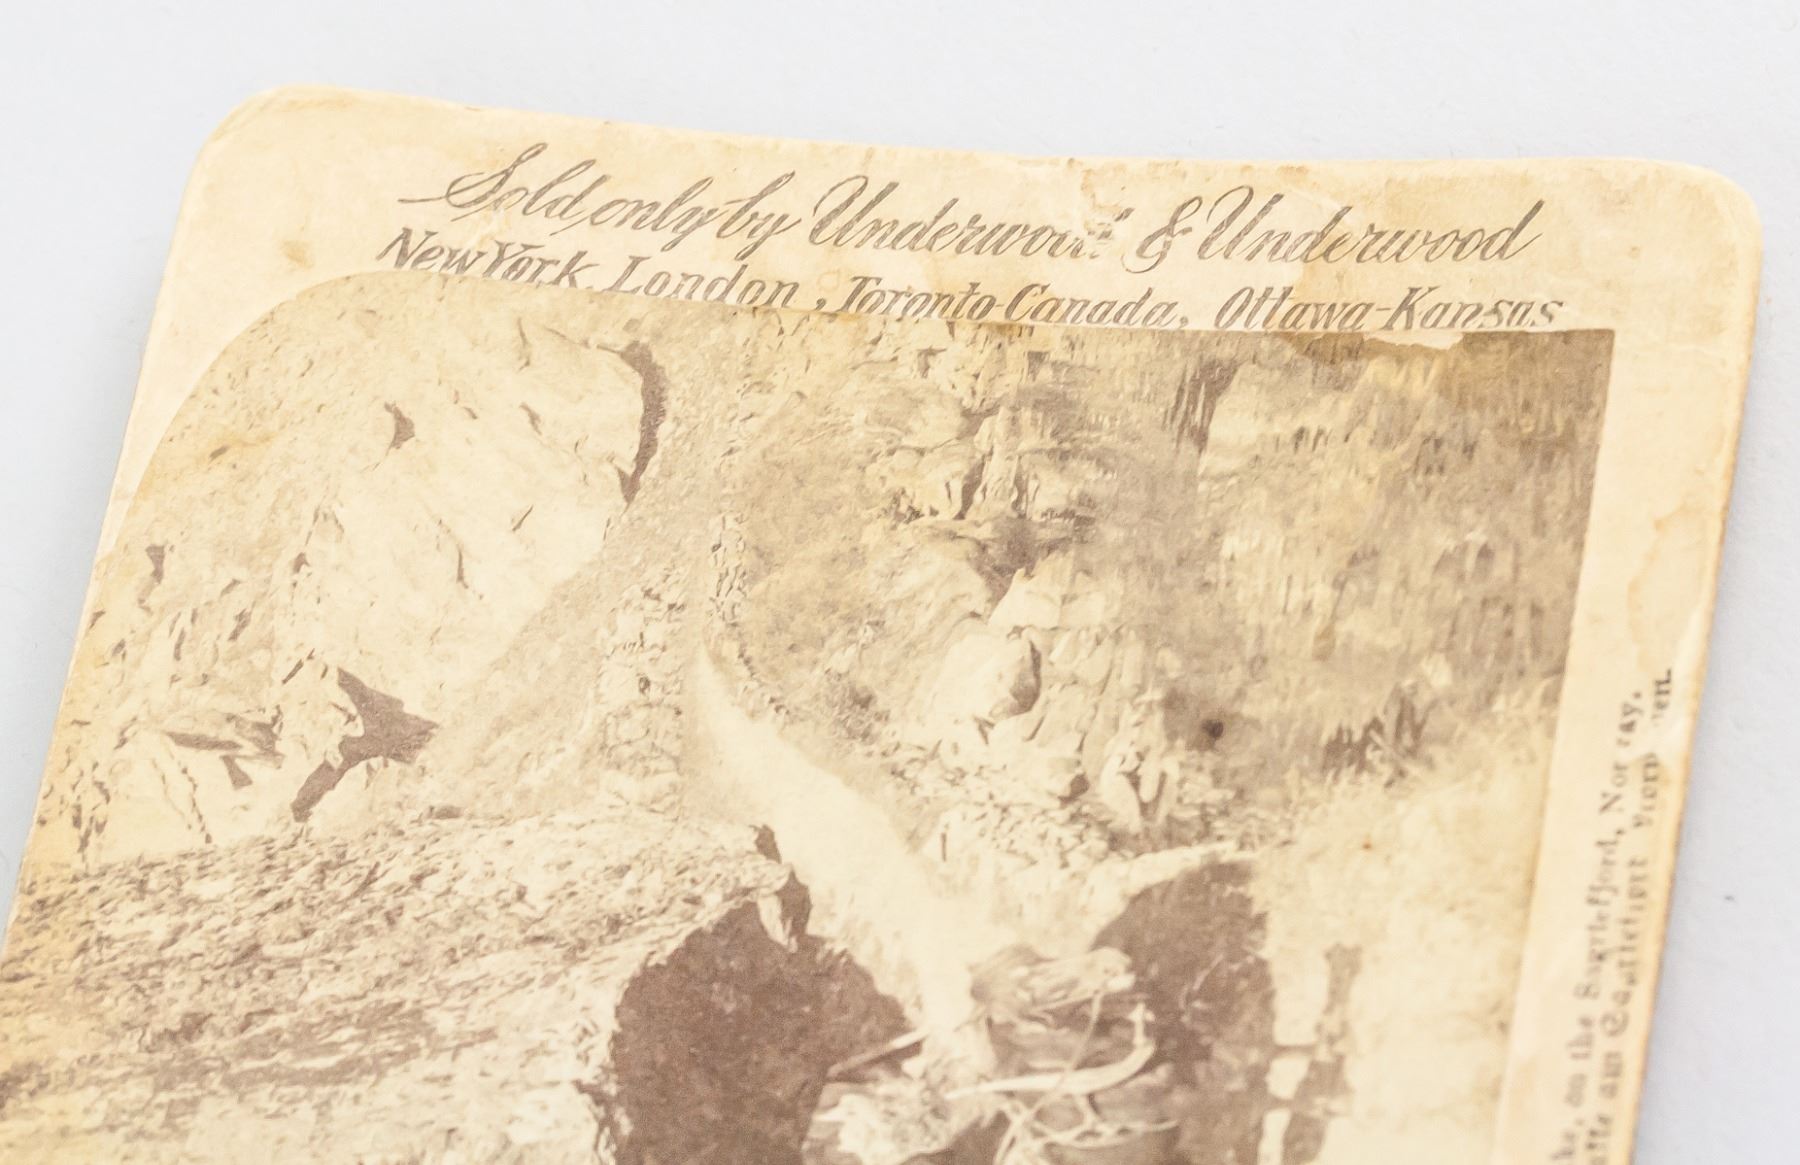 Sold only by Underwood & Underwood
New York, London, Toronto-Canada, Ottawa-Kansas
on the Sognefjord, Norway.
am